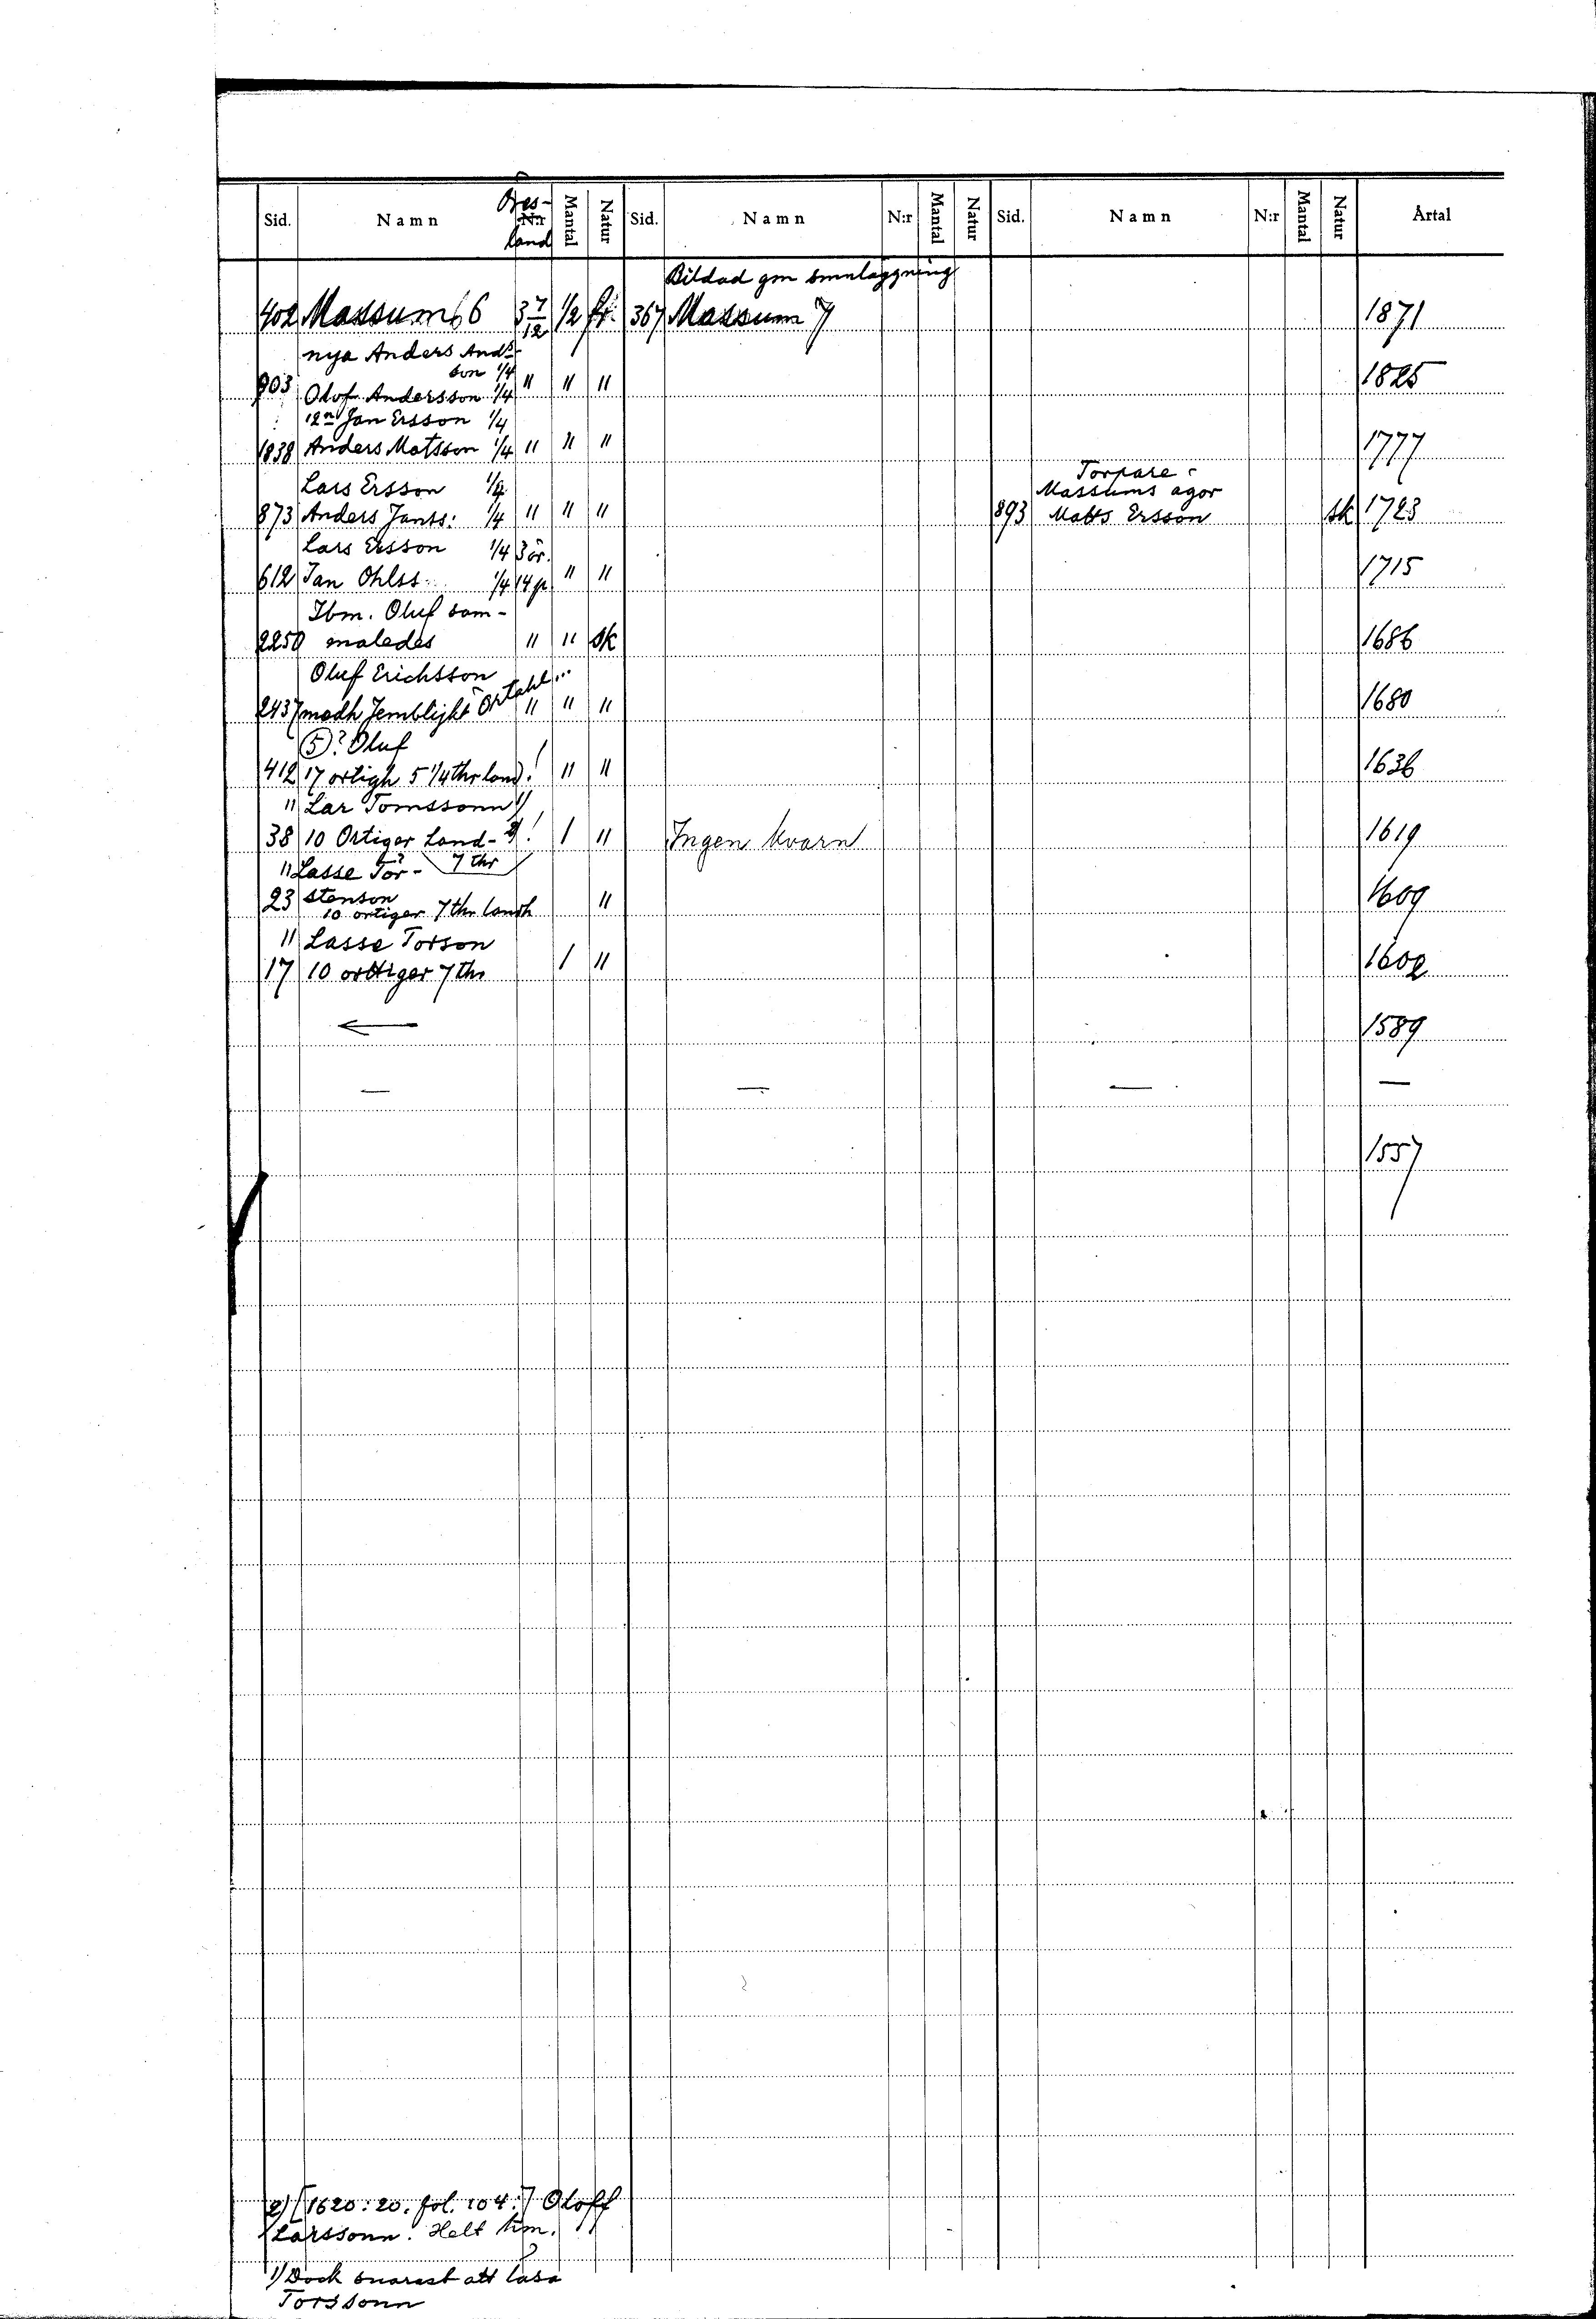 Sid. Namn Öres-land N:r Mantal Natur Sid. Namn N:r Mantal Natur Sid. Namn N:r Mantal Natur Årtal
Bildad gm smnläggning
402 Massum 6 3 7/12 1/2 fr. 367 Massum 7 1871
nya Anders Anders-
son 1/4
903 Olof Andersson 1/4 " " " 1825
12n Jan Ersson 1/4
1838 Anders Matsson 1/4 " " " 1777
Lars Ersson 1/4 Torpare å
Massums ägor
873 Anders Janss: 1/4 " " " 893 Matts Ersson sk 1723
Lars Ersson 1/4 3 ör.
612 Jan Ohlss: 1/4 14 p. " " 1715
Ibm. Oluf sam-
2250 maledes " " sk 1686
Oluf Erichsson
2437 medh Jemblight Örtahl... " " " 1680
(5)? Oluf
412 17 örtigh 5 1/4 thr land! " " 1636
" Lar Tomssonn 1)
38 10 Örtiger Land- 2)! 1 " Ingen kvarn 1619
7 thr
" Lasse Tor?-
23 stenson
10 örtiger 7 thr landh " 1609
" Lasse Torson
17 10 örttiger 7 thr 1 " 1602
← 1589
— — — —
1557
2) [1620:20. fol. 104:] Oloff
Larssonn. Helt hm.
1) Dock snarast att läsa
Torssonn